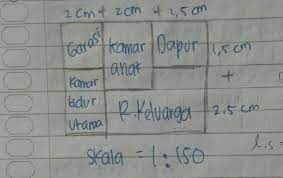 2 cm + 2 cm + 2,5 cm
Garasi Kamar anak Dapur 1,5 cm
+
Kamar tidur utama R. Keluarga 2,5 cm
Skala = 1:150